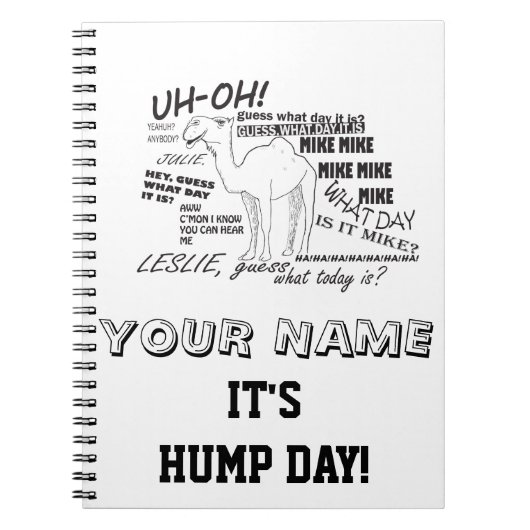 UH-OH!
guess what day it is?
GUESS.WHAT.DAY.IT.IS
YEAHUH?
ANYBODY?
MIKE MIKE
JULIE,
MIKE MIKE
HEY, GUESS
WHAT DAY
IT IS?
MIKE
WHAT DAY
IS IT MIKE?
AWW
C'MON I KNOW
YOU CAN HEAR
ME
HA!HA!HA!HA!HA!HA!HA!
LESLIE, guess
what today is?
YOUR NAME
IT'S
HUMP DAY!